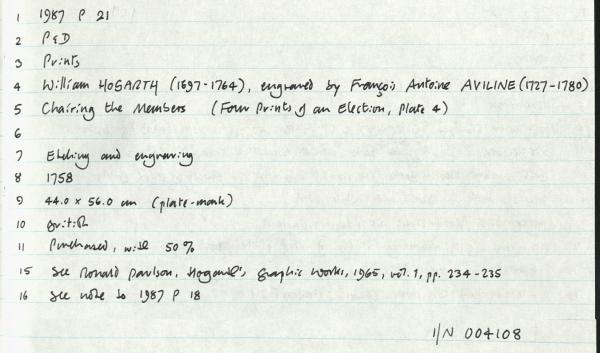 1 1987 P 21
2 P&D
3 Prints
4 William HOGARTH (1697-1764), engraved by François Antoine AVILINE (1727-1780)
5 Chairing the Members (Four Prints of an Election, Plate 4)
6
7 Etching and engraving
8 1758
9 44.0 x 56.0 cm (plate-mark)
10 British
11 Purchased, with 50%
15 See Ronald Paulson, Hogarth's Graphic Works, 1965, vol. 1, pp. 234-235
16 See note to 1987 P 18
I/N 004108